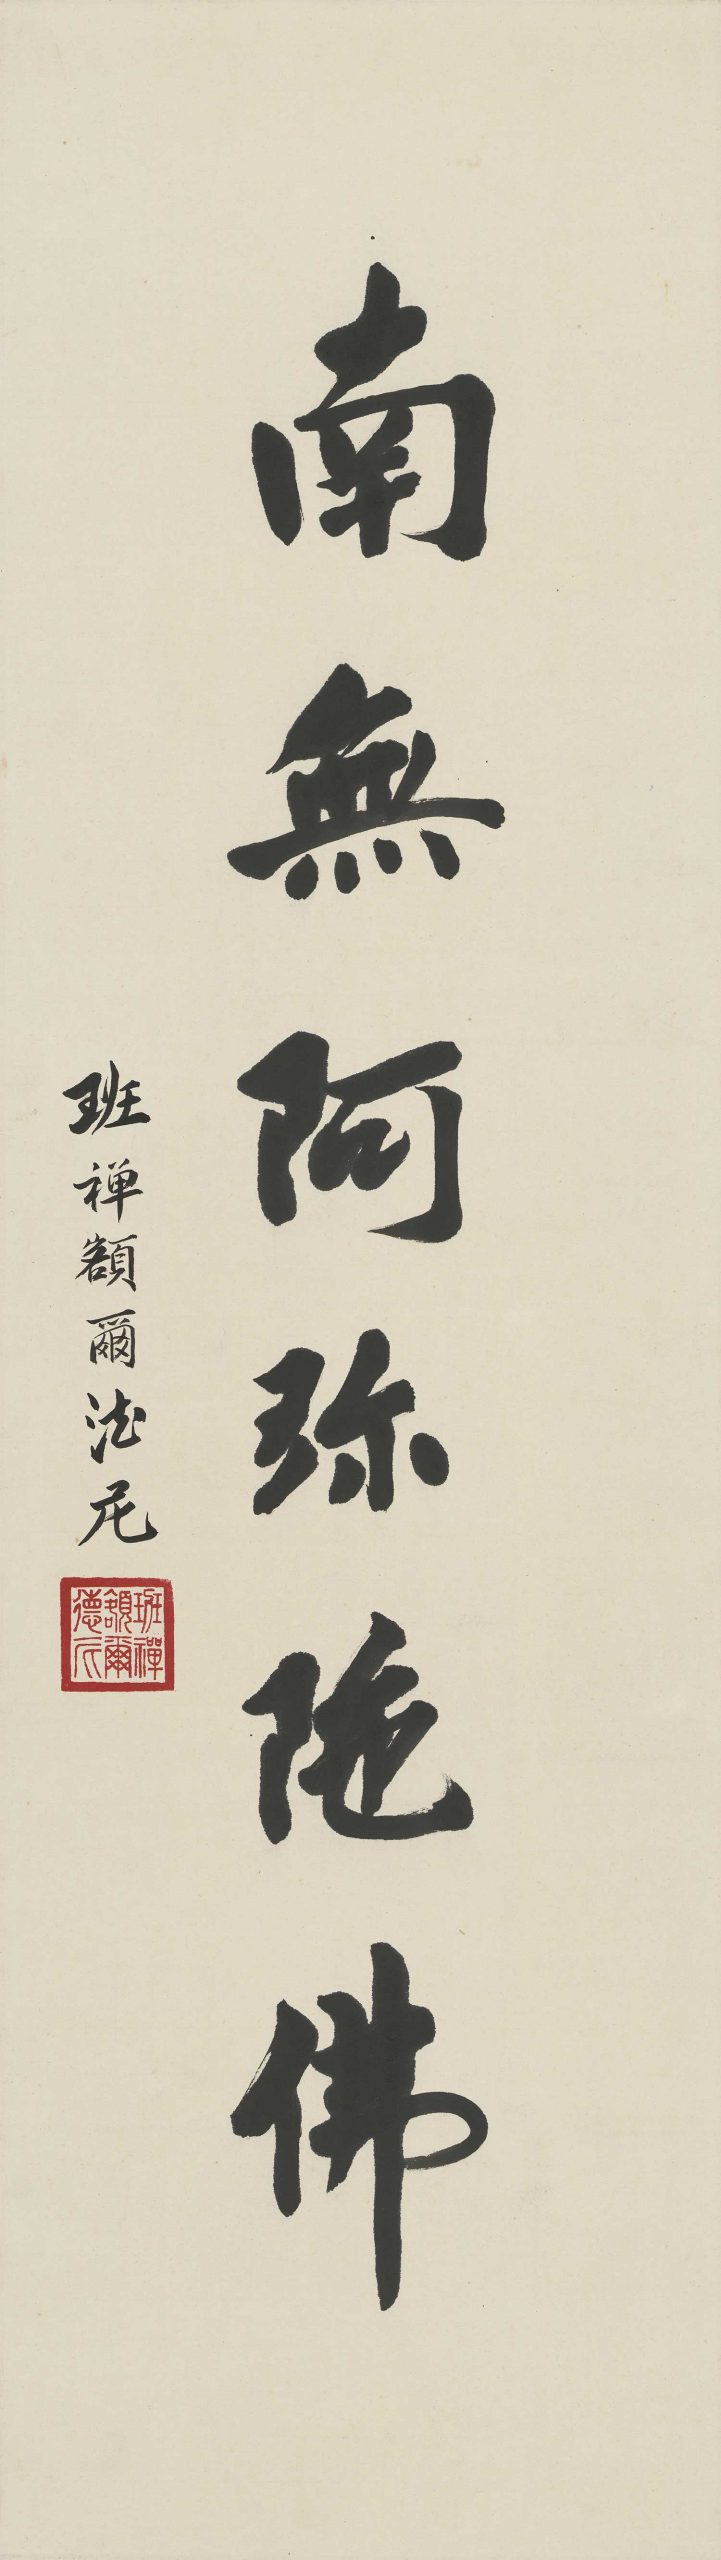 南無阿弥陀佛
班禅額爾德尼
班禪
額爾
德尼